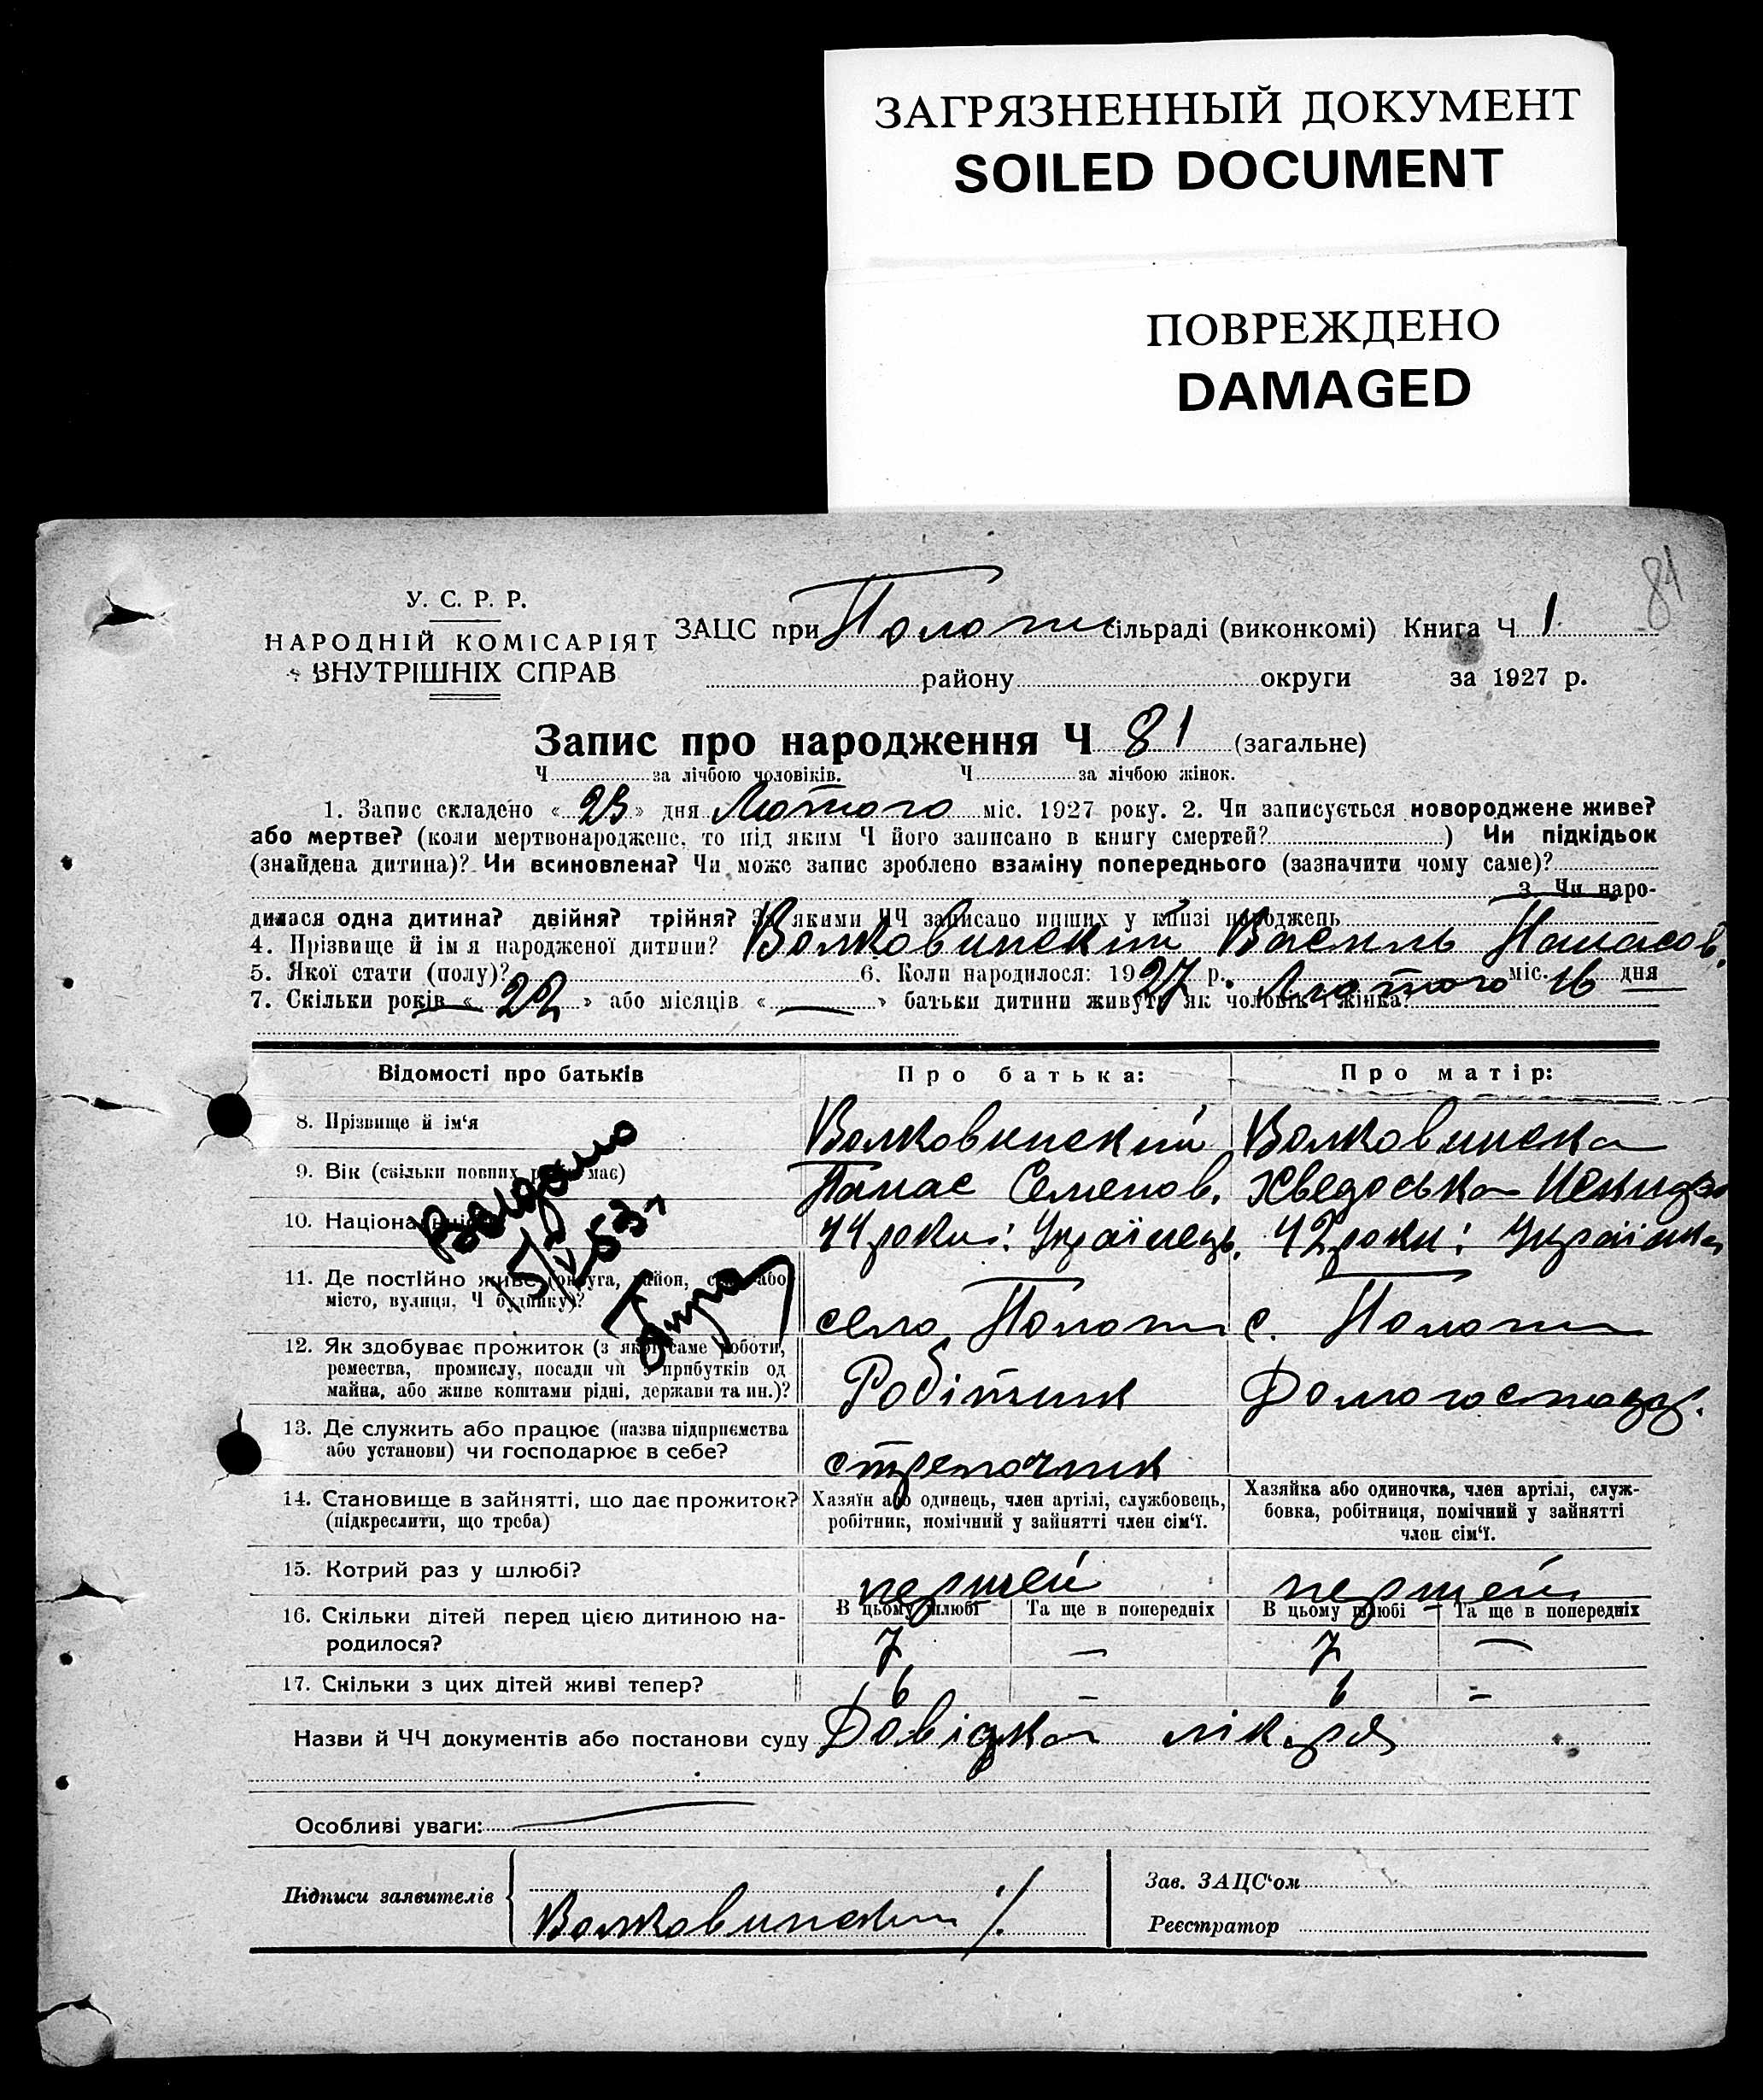 ЗАГРЯЗНЕННЫЙ ДОКУМЕНТ
SOILED DOCUMENT
ПОВРЕЖДЕНО
DAMAGED
81
У. С. Р. Р.
НАРОДНІЙ КОМІСАРІЯТ
ВНУТРІШНІХ СПРАВ
ЗАЦС при Пологи сільраді (виконкомі) Книга Ч 1
району округи за 1927 р.
Запис про народження Ч 81 (загальне)
Ч за лічбою чоловіків. Ч за лічбою жінок.
1. Запис складено « 23 » дня Лютого міс. 1927 року. 2. Чи записується новороджене живе?
або мертве? (коли мертвонароджене, то під яким Ч його записано в книгу смертей? ) Чи підкідьок
(знайдена дитина)? Чи всиновлена? Чи може запис зроблено взаміну попереднього (зазначити чому саме)?
3. Чи наро-
дилася одна дитина? двійня? трійня? За якими ЧЧ записано инших у книзі народжень
4. Прізвище й ім я народженої дитини? Волковинский Василь Панасов.
5. Якої стати (полу)? 6. Коли народилося: 1927 р. Лютого міс. 16 дня
7. Скільки років « 22 » або місяців « — » батьки дитини живуть як чоловік і жінка?
Відомості про батьків Про батька: Про матір:
8. Прізвище й ім‘я Волковинский Волковинска
9. Вік (скільки повних років має) Панас Семенов. Хведоська
10. Національність 44 роки: Українець. 42 роки: Українка
Видано
15/V 253
11. Де постійно живе (округа, район, село або
місто, вулиця, Ч будинку)? село Пологи с. Пологи
12. Як здобуває прожиток (з якої саме роботи,
ремества, промислу, посади чи з прибутків од
майна, або живе коштами рідні, держави та ин.)? Робітник Домогосподар.
13. Де служить або працює (назва підприємства
або установи) чи господарює в себе? стрелочник
14. Становище в зайнятті, що дає прожиток?
(підкреслити, що треба)
Хазяїн або одинець, член артілі, службовець,
робітник, помічний у зайнятті член сім‘ї.
Хазяйка або одиночка, член артілі, служ-
бовка, робітниця, помічний у зайнятті
член сім‘ї.
15. Котрий раз у шлюбі? першей першей
16. Скільки дітей перед цією дитиною на-
родилося?
В цьому шлюбі Та ще в попередніх В цьому шлюбі Та ще в попередніх
7 — 7 —
17. Скільки з цих дітей живі тепер? 6 — 6 —
Назви й ЧЧ документів або постанови суду Довідка лікаря
Особливі уваги:
Підписи заявителів Волковинский
Зав. ЗАЦС‘ом
Реєстратор